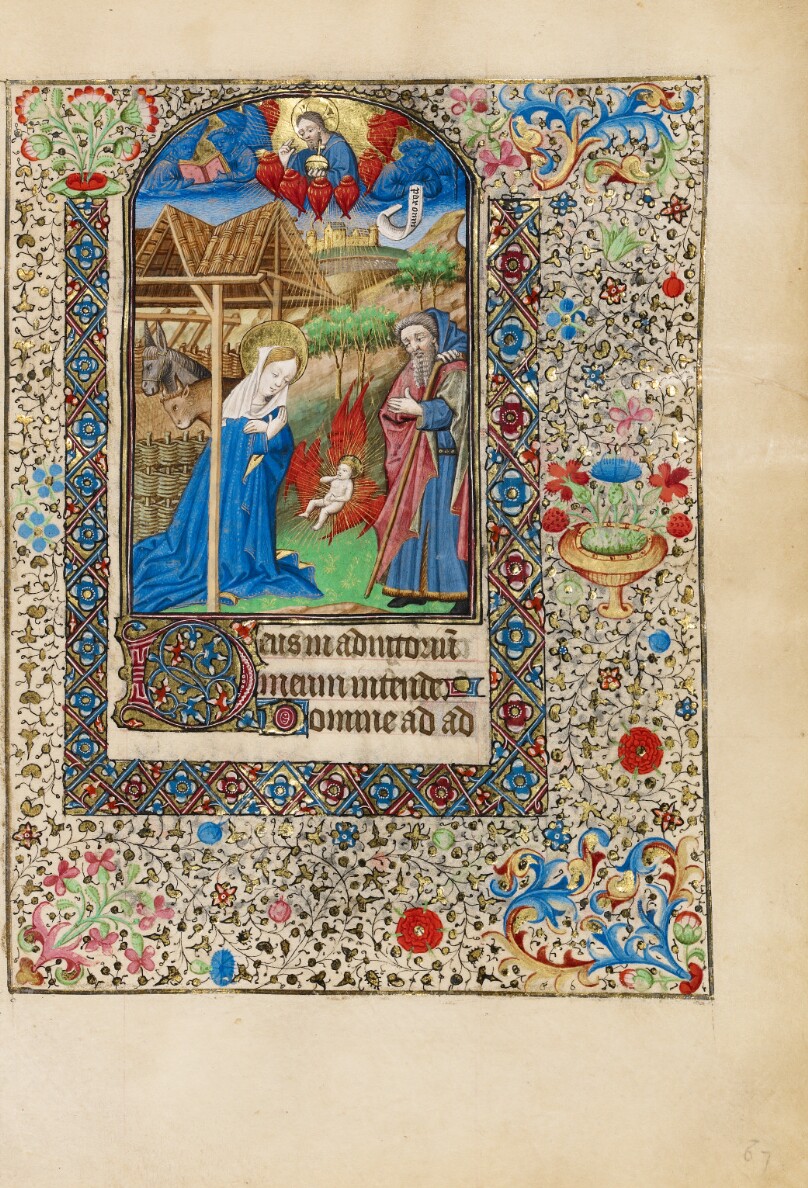 Deus in adiutoriū
meum intende
Domine ad ad
67